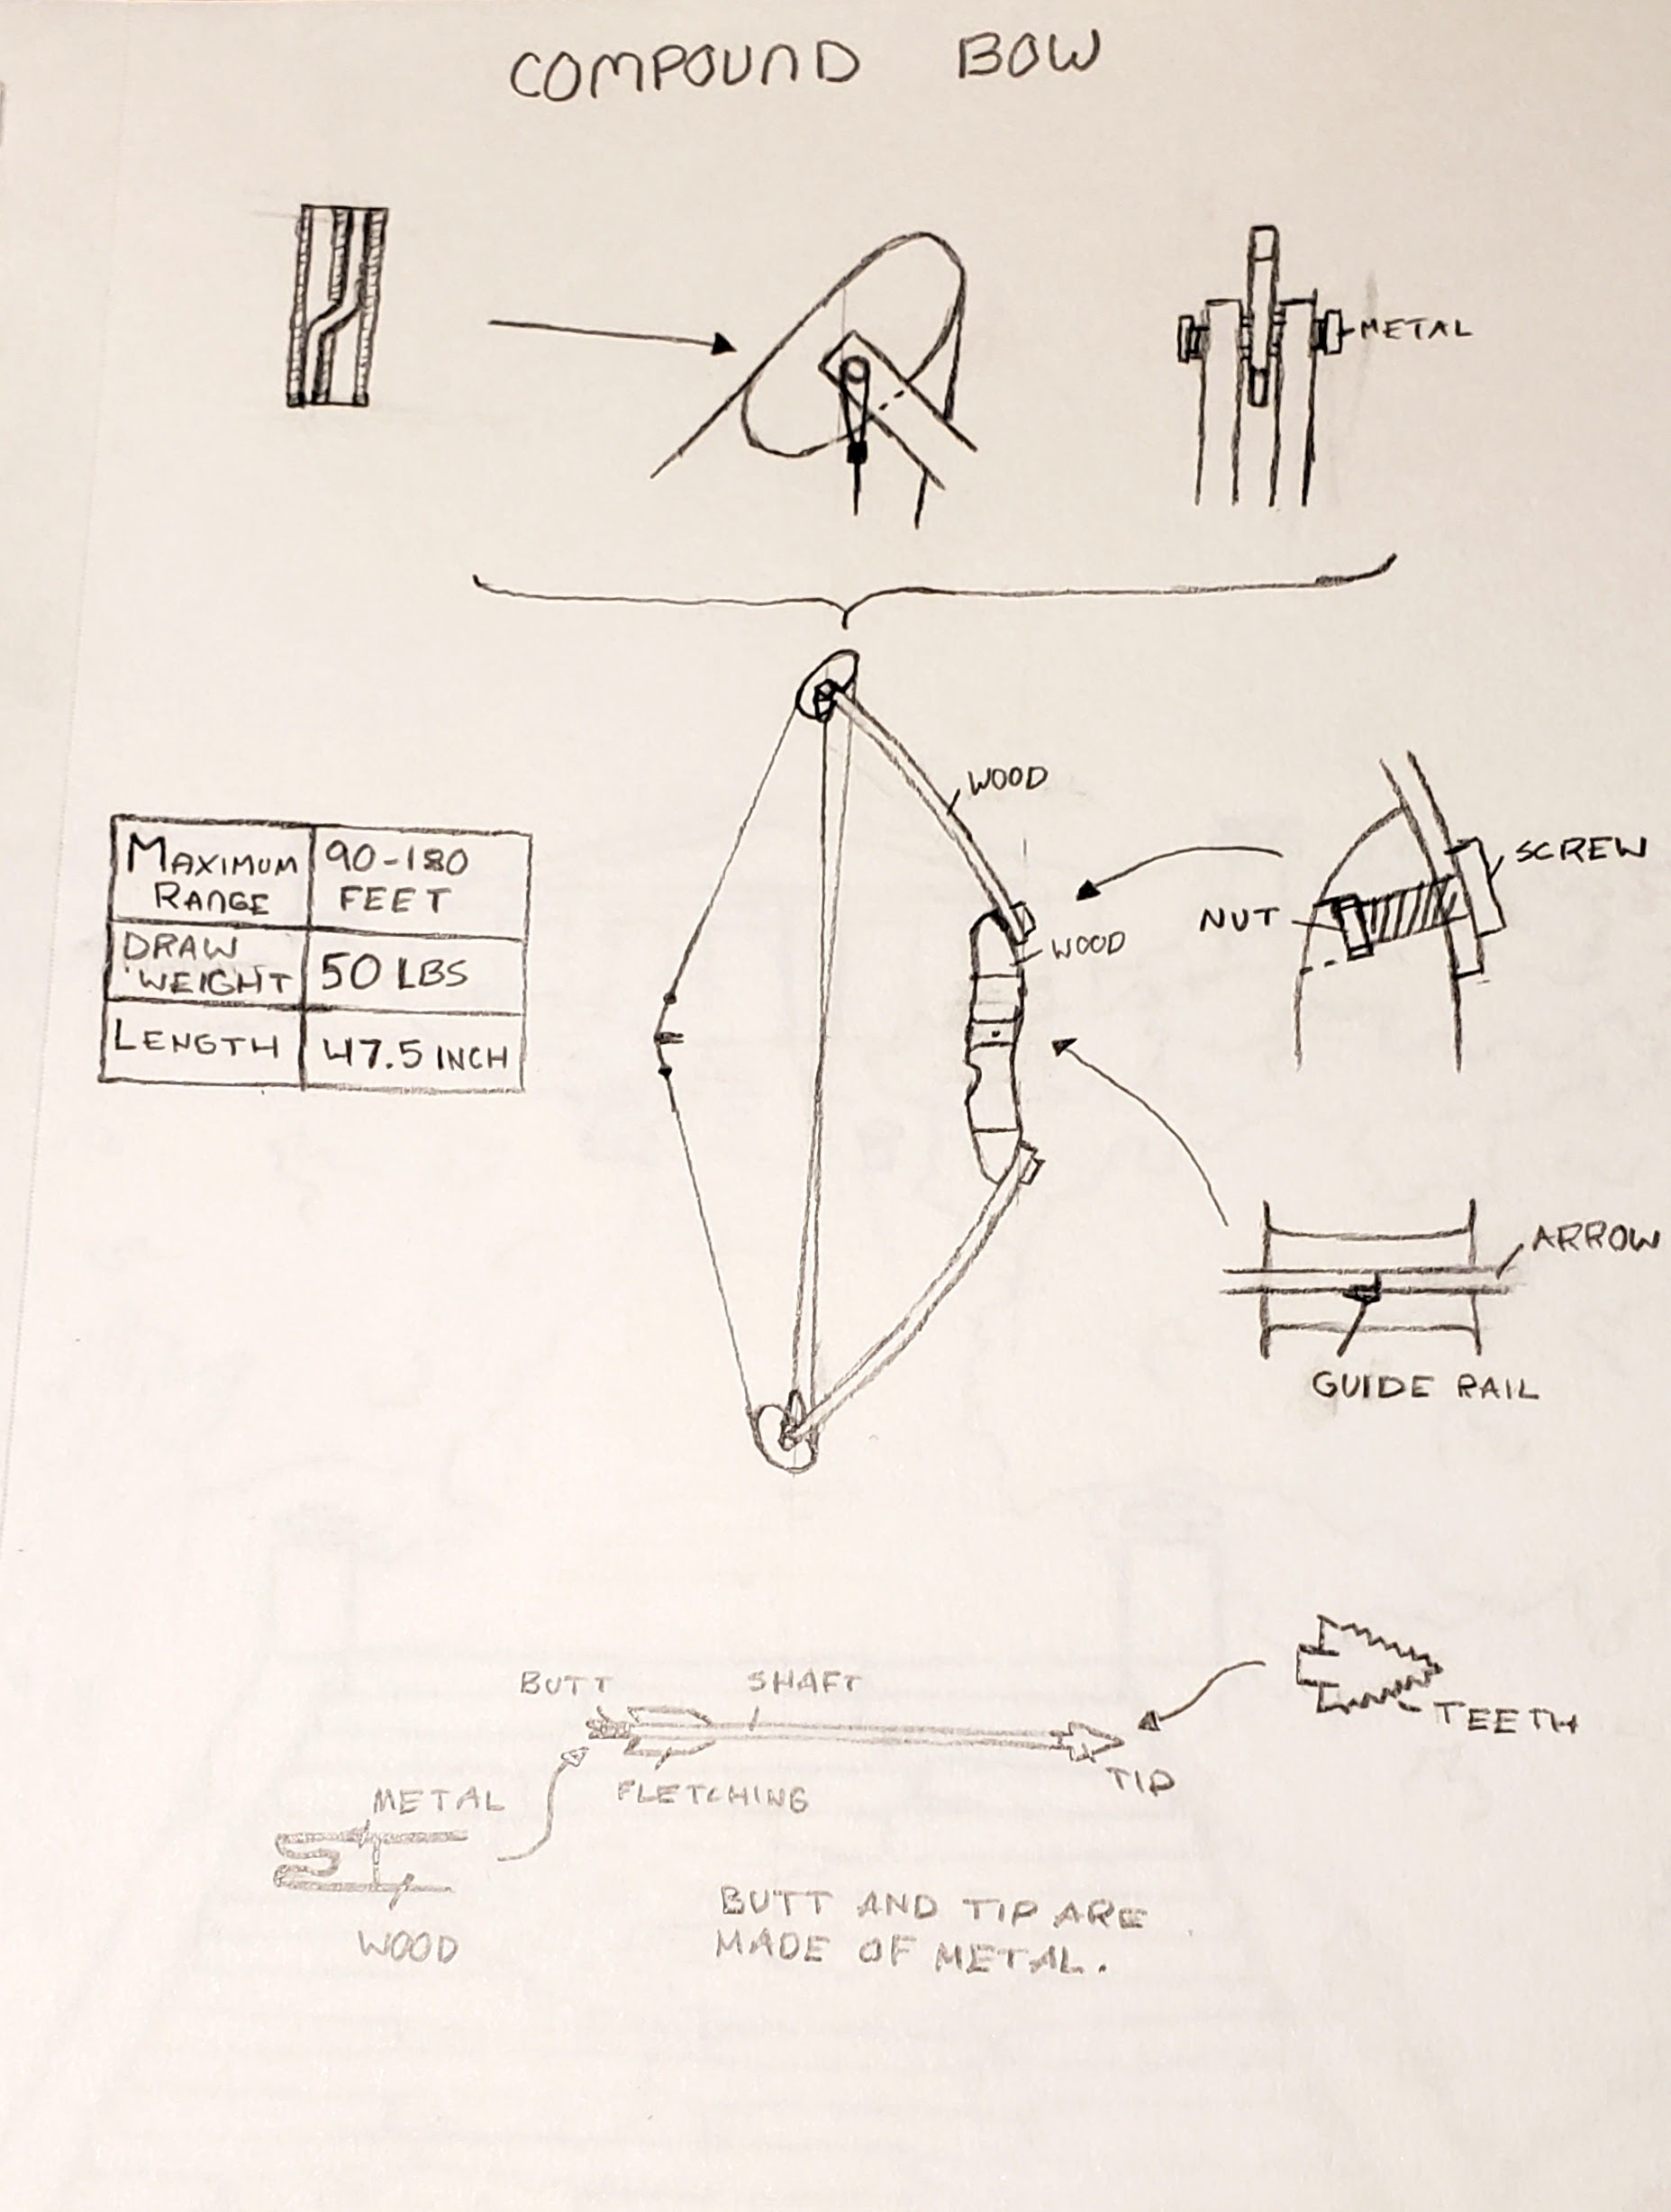 COMPOUND BOW
METAL
WOOD
SCREW
NUT
WOOD
MAXIMUM RANGE
90-180 FEET
DRAW WEIGHT
50 LBS
LENGTH
47.5 INCH
ARROW
GUIDE RAIL
BUTT
SHAFT
TEETH
TIP
FLETCHING
METAL
WOOD
BUTT AND TIP ARE
MADE OF METAL.